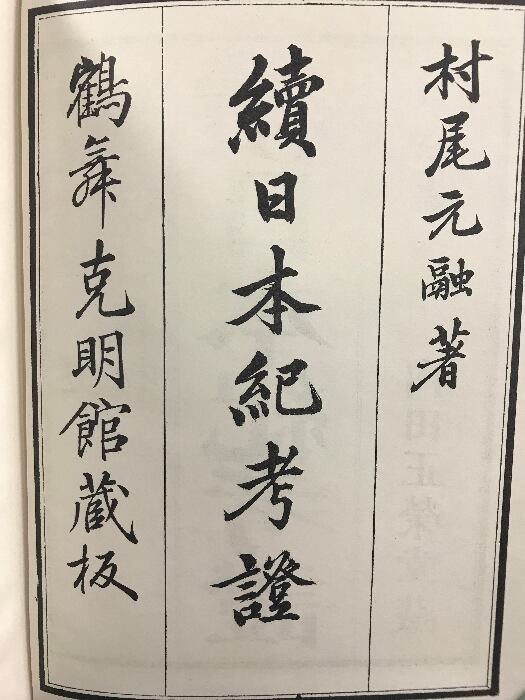 村尾元融著
續日本紀考證
鶴舞克明館蔵板